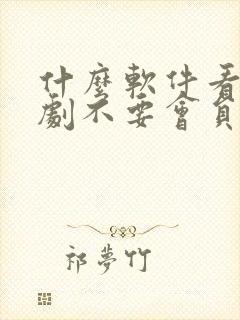 什麼軟件看
劇不要會員
祁夢竹